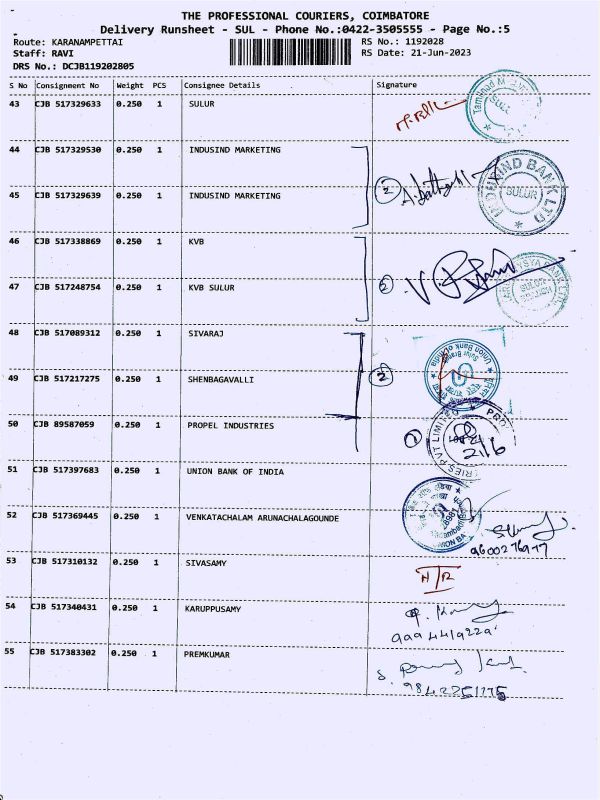 THE PROFESSIONAL COURIERS, COIMBATORE
Delivery Runsheet - SUL - Phone No.:0422-3505555 - Page No.:5
Route: KARANAMPETTAI
RS No.: 1192028
Staff: RAVI
RS Date: 21-Jun-2023
DRS No.: DCJB119202805
S No Consignment No Weight PCS Consignee Details Signature
43 CJB 517329633 0.250 1 SULUR
44 CJB 517329530 0.250 1 INDUSIND MARKETING
2
INDUSIND BANK LTD
SULUR
45 CJB 517329639 0.250 1 INDUSIND MARKETING
46 CJB 517338869 0.250 1 KVB
2
47 CJB 517248754 0.250 1 KVB SULUR
48 CJB 517089312 0.250 1 SIVARAJ
Union Bank of India
Sulur Branch
2
49 CJB 517217275 0.250 1 SHENBAGAVALLI
50 CJB 89587059 0.250 1 PROPEL INDUSTRIES
1
21/6
51 CJB 517397683 0.250 1 UNION BANK OF INDIA
52 CJB 517369445 0.250 1 VENKATACHALAM ARUNACHALAGOUNDE
9600276977
53 CJB 517310132 0.250 1 SIVASAMY
54 CJB 517340431 0.250 1 KARUPPUSAMY
55 CJB 517383302 0.250 1 PREMKUMAR